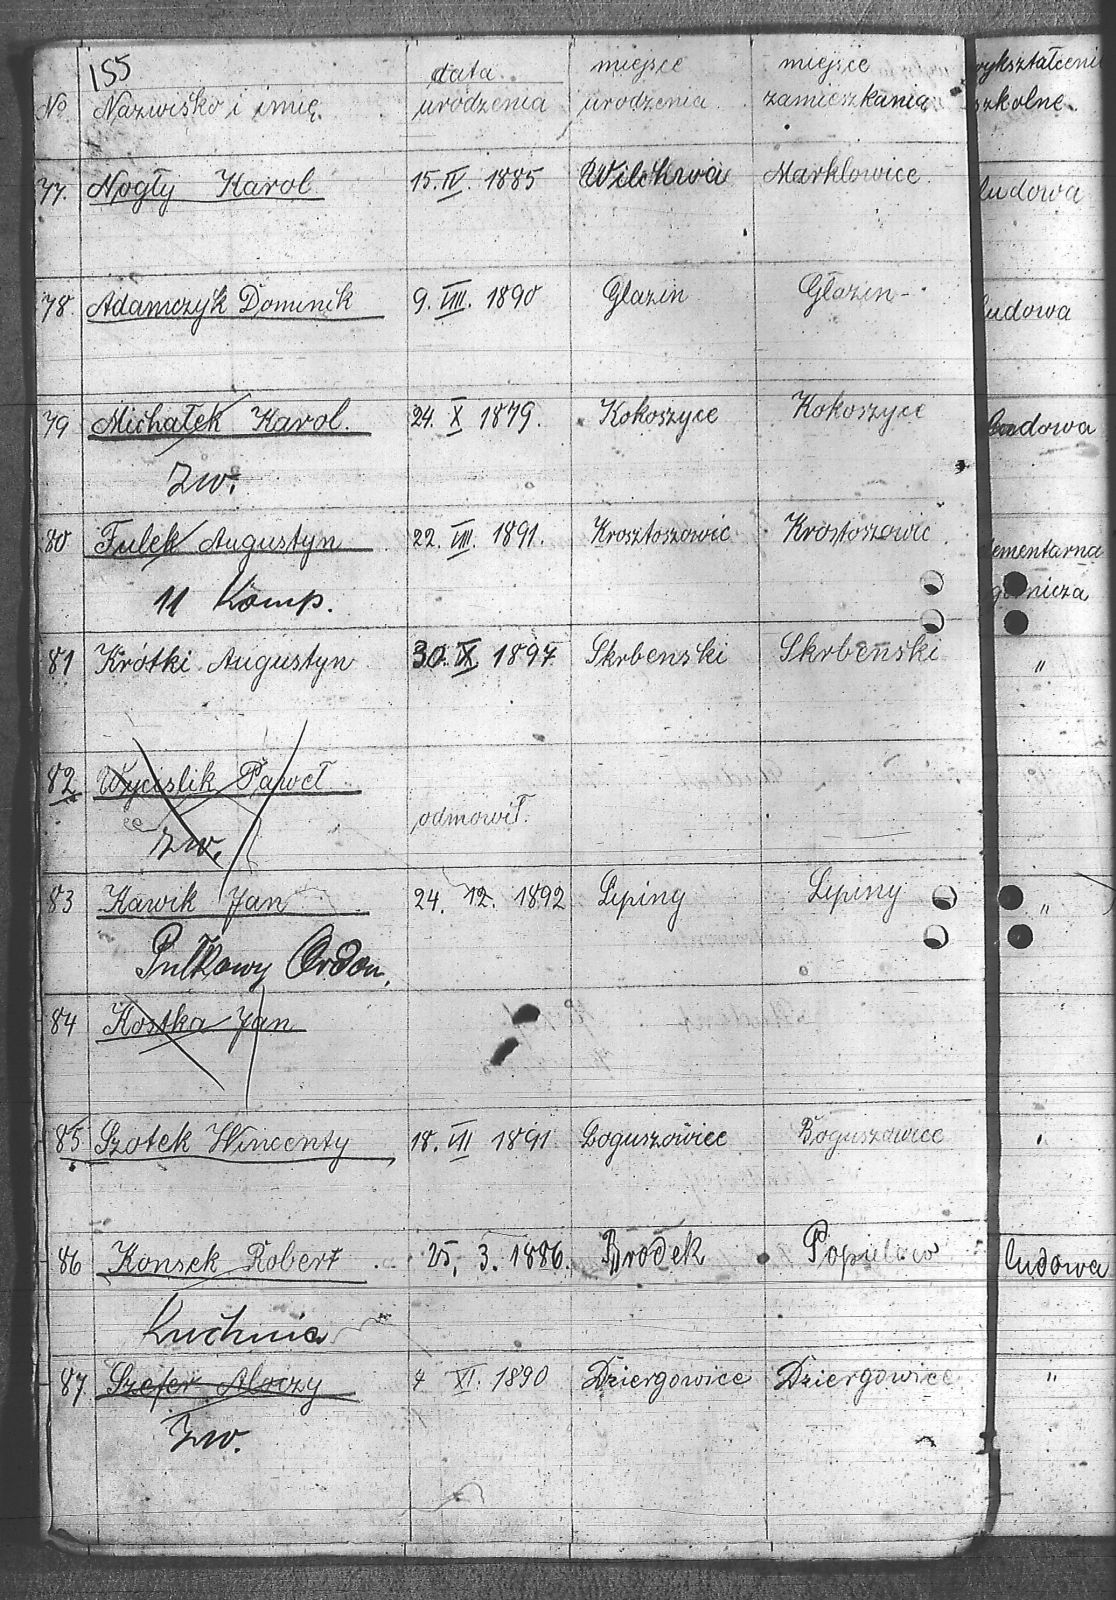 155
No Nazwisko i imię. data urodzenia miejsce urodzenia. miejsce zamieszkania wykształceni szkolne.
77. Nogły Karol 15. IV. 1885 Wilchwa Marklowice. ludowa
78. Adamczyk Dominik 9. VIII. 1890 Glazin Głozin ludowa
79 Michałek Karol. 24. X 1879. Kokoszyce Kokoszyce ludowa
Zw.
80 Fulek Augustyn 22. VIII. 1891. Krosztoszowic Krostoszowic elementarna
11 Komp. górnicza
81 Krótki Augustyn 30. IX 1897 Skrbenski Skrbeński "
82 Wycislik Paweł
odmowił.
Zw.
83 Kawik Jan 24. 12. 1892 Lipiny Lipiny "
Pułkowy Ordon.
84 Kostka Jan
85 Szotek Wincenty 18. VII 1891 Boguszowiec Boguszowice
86 Konsek Robert 25. 3. 1886. Brodek Popielow ludowa
Kuchnia
87. Szefer Alojzy 4 XI. 1890 Dziergowice Dziergowice "
Zw.